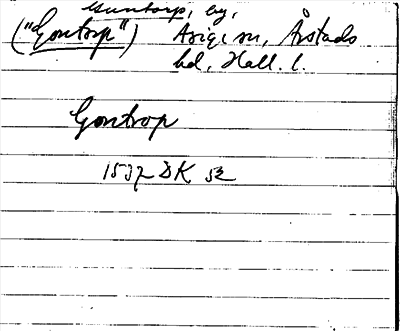 Guntorp, by,
("Gontorp") Asige sn, Årstads
hd, Hall. l.
Gontrop
1537 DK 52